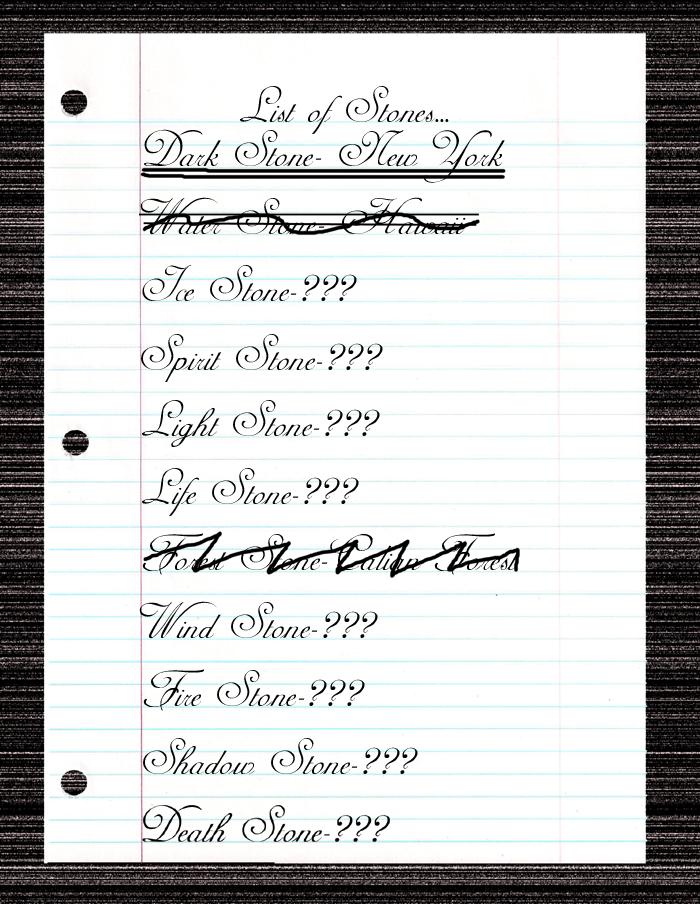 List of Stones...
Dark Stone- New York
Water Stone- Hawaii
Ice Stone-???
Spirit Stone-???
Light Stone-???
Life Stone-???
Forest Stone- Forest
Wind Stone-???
Fire Stone-???
Shadow Stone-???
Death Stone-???